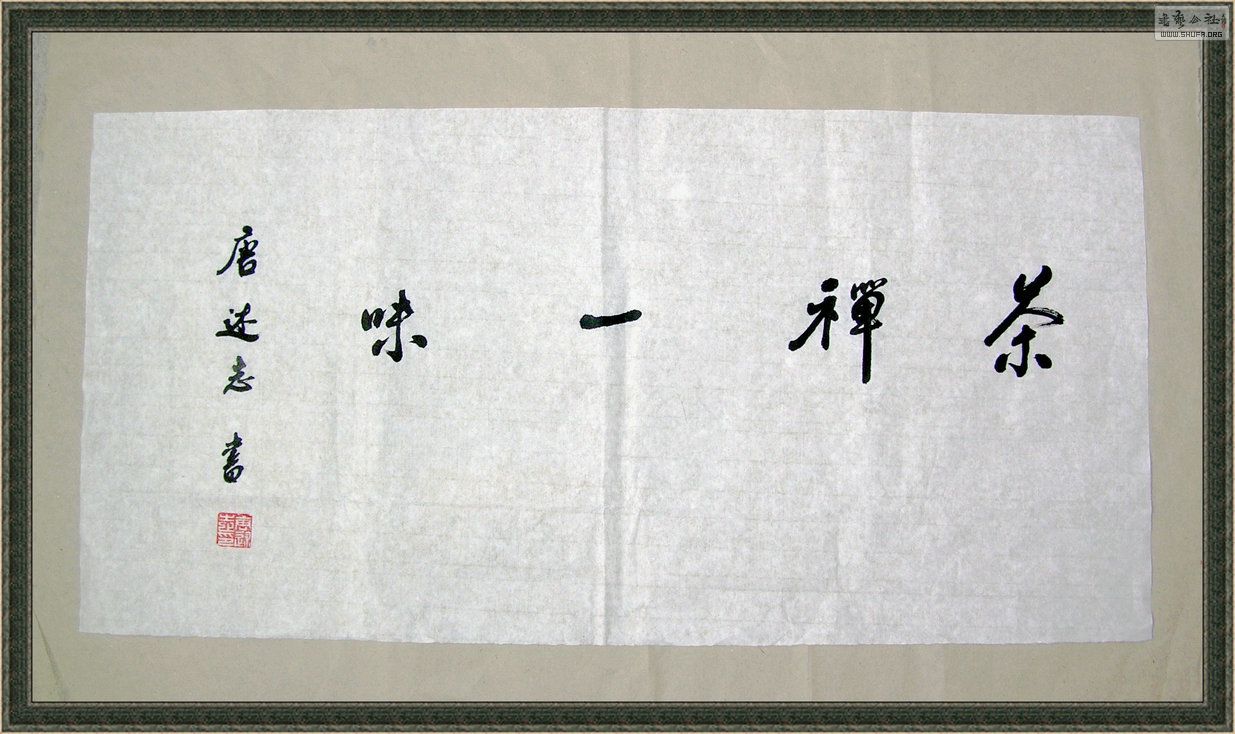 茶禪一味
唐迹志書
書藝公社
WWW.SHUFA.ORG